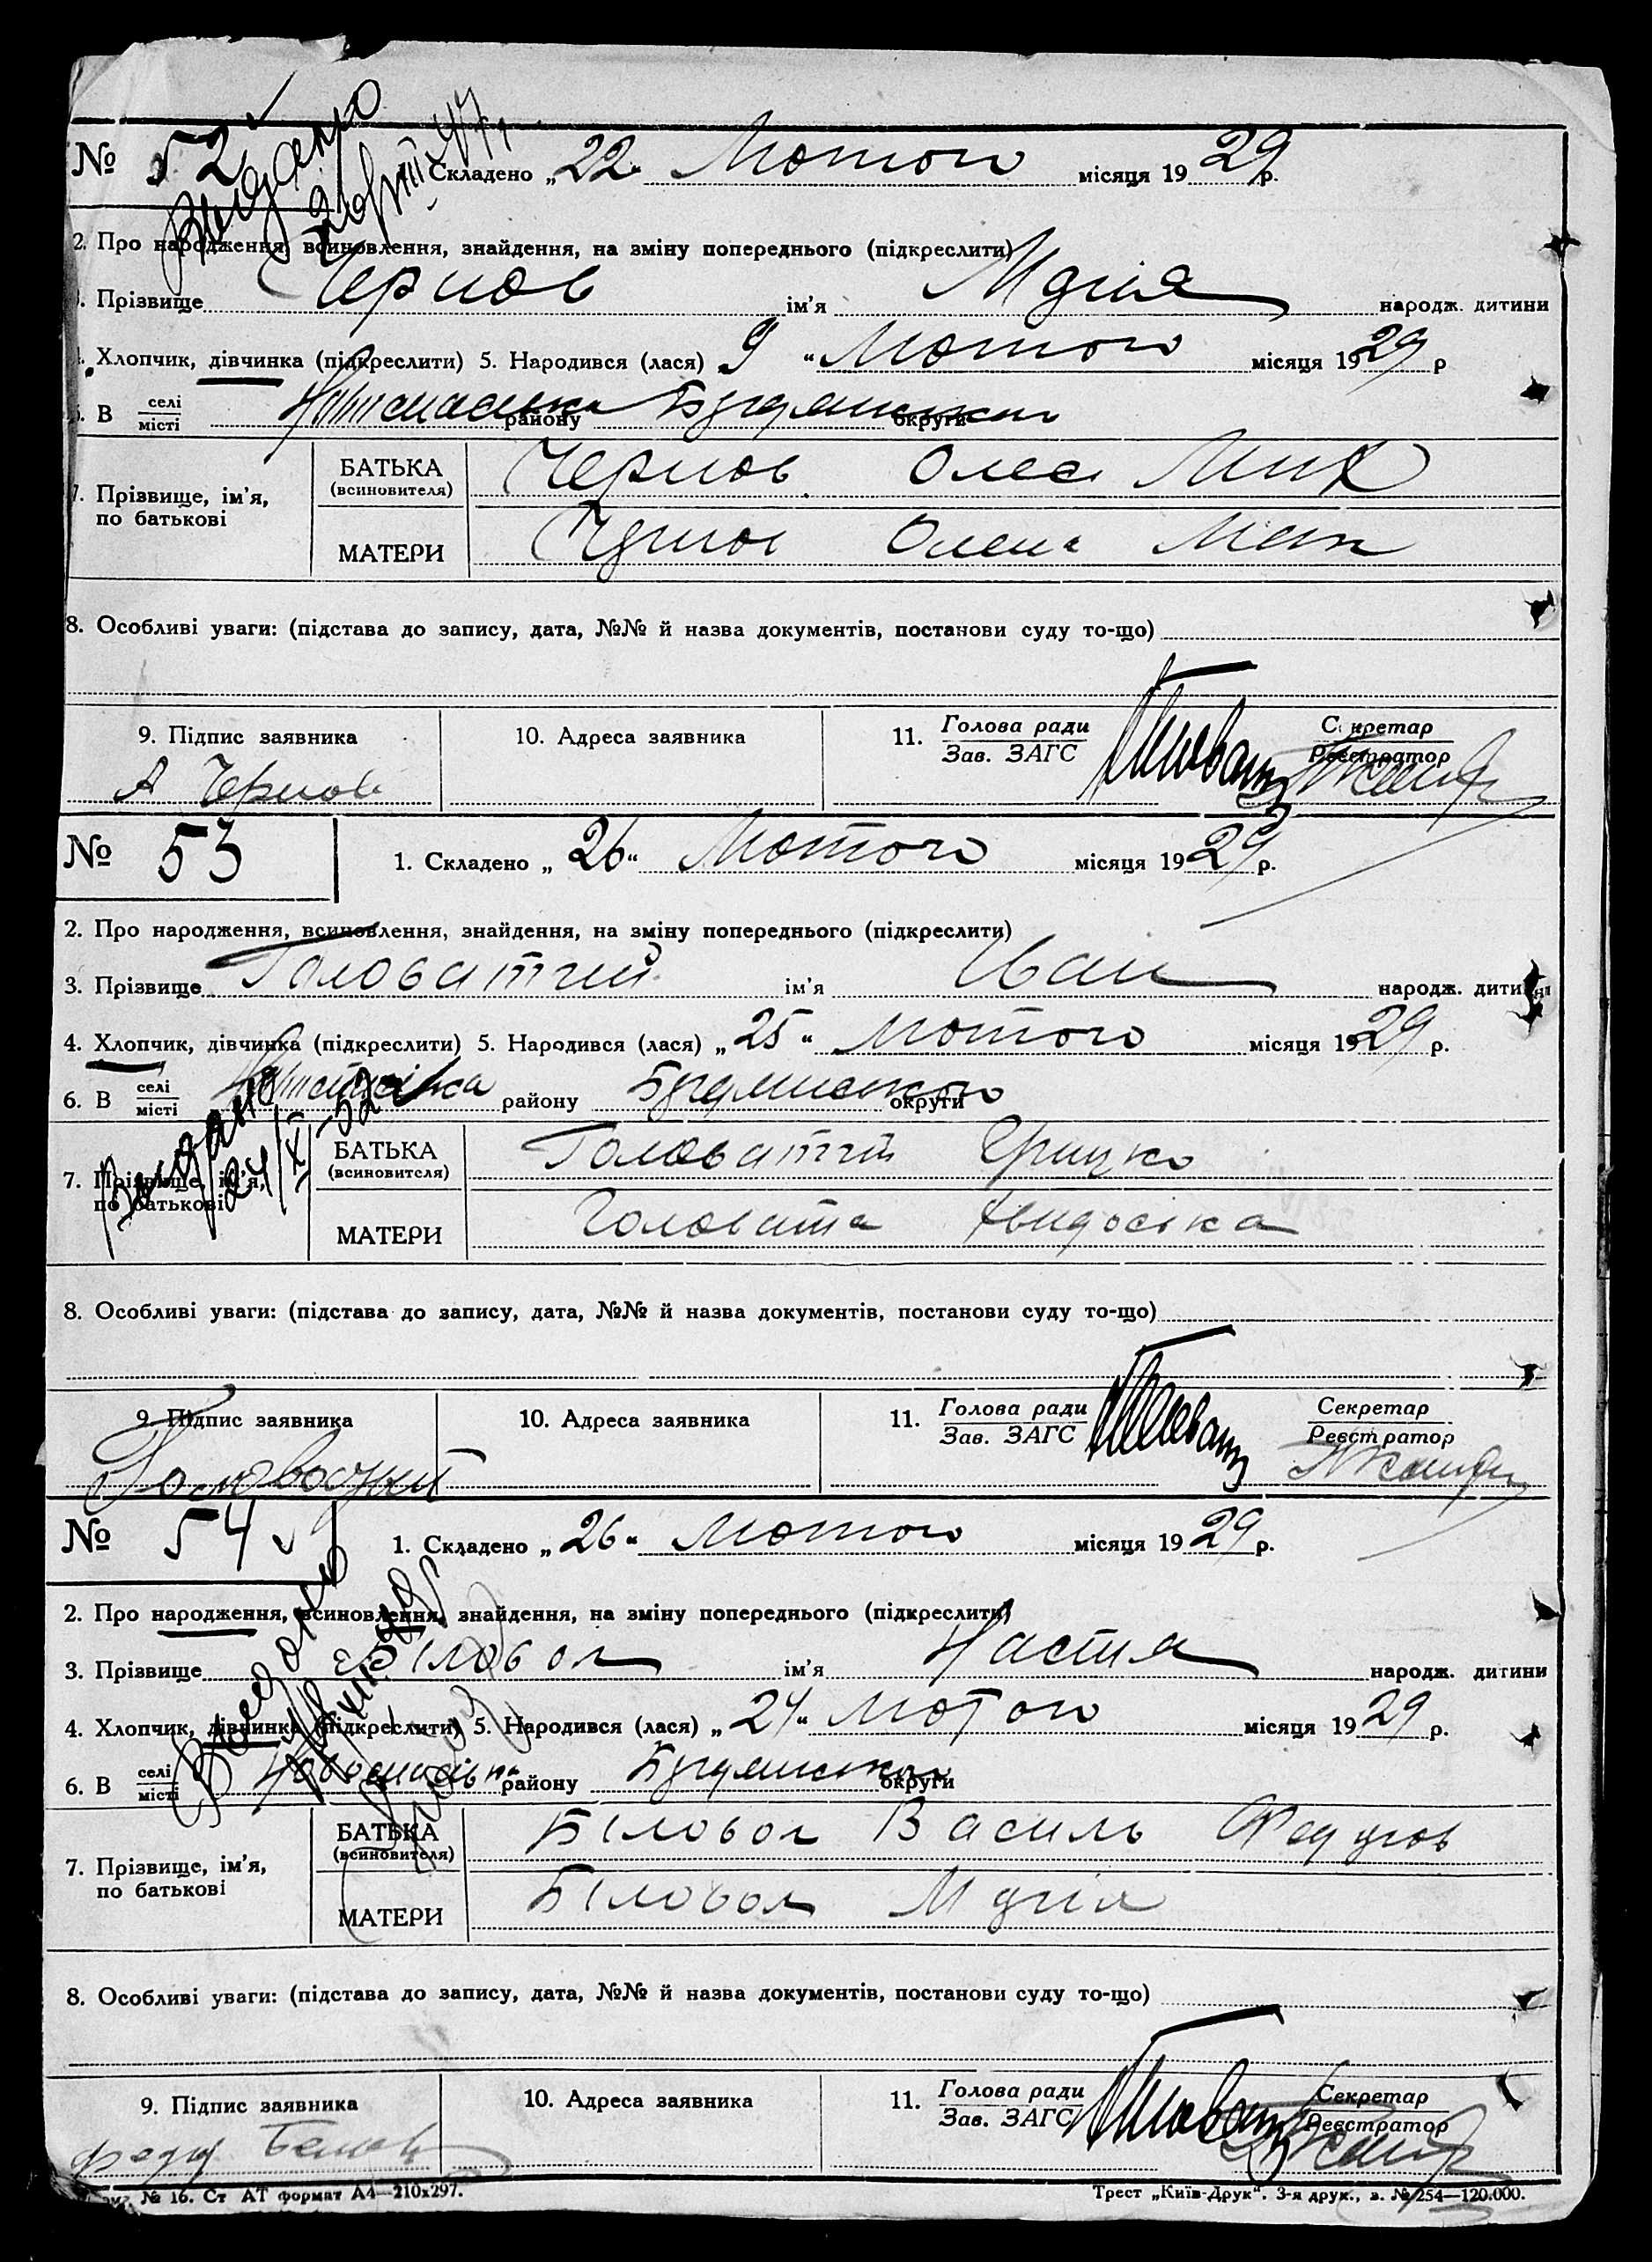 № 52
Видано
Складено „22“ Лютого місяця 1929 р.
2. Про народження, всиновлення, знайдення, на зміну попереднього (підкреслити)
3. Прізвище Чернов ім'я Марія народж. дитини
4. Хлопчик, дівчинка (підкреслити) 5. Народився (лася) „9“ Лютого місяця 1929 р
6. В селі місті району округи
7. Прізвище, ім'я, по батькові
БАТЬКА (всиновителя) Чернов Олекс Мих
МАТЕРИ Чернов Олена
8. Особливі уваги: (підстава до запису, дата, №№ й назва документів, постанови суду то-що)
9. Підпис заявника 10. Адреса заявника 11. Голова ради Зав. ЗАГС Секретар Реєстратор
А Чернов
№ 53 1. Складено „26“ Лютого місяця 1929 р.
2. Про народження, всиновлення, знайдення, на зміну попереднього (підкреслити)
3. Прізвище Головатий ім'я Іван народж. дитини
4. Хлопчик, дівчинка (підкреслити) 5. Народився (лася) „25“ Лютого місяця 1929 р.
6. В селі місті району округи
Видано 24/XI-32
7. Прізвище, ім'я, по батькові
БАТЬКА (всиновителя) Головатий Грицко
МАТЕРИ Головата Явидоська
8. Особливі уваги: (підстава до запису, дата, №№ й назва документів, постанови суду то-що)
9. Підпис заявника 10. Адреса заявника 11. Голова ради Зав. ЗАГС Секретар Реєстратор
№ 54 1. Складено „26“ Лютого місяця 1929 р.
2. Про народження, всиновлення, знайдення, на зміну попереднього (підкреслити)
3. Прізвище Біловол ім'я Настя народж. дитини
4. Хлопчик, дівчинка (підкреслити) 5. Народився (лася) „24“ Лютого місяця 1929 р.
6. В селі місті району округи
7. Прізвище, ім'я, по батькові
БАТЬКА (всиновителя) Біловол Василь Федоров
МАТЕРИ Біловол Марія
8. Особливі уваги: (підстава до запису, дата, №№ й назва документів, постанови суду то-що)
9. Підпис заявника 10. Адреса заявника 11. Голова ради Зав. ЗАГС Секретар Реєстратор
№ 16. Ст АТ формат А4—210х297. Трест „Київ-Друк“. 3-я друк., з. № 254—120.000.